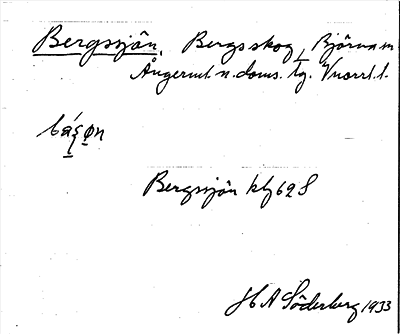 Bergsjön, Bergsskog, Björna sn
Ångerml. n. doms. tg. Vnorrl. l.
Bergsjön kbl 62 S
H A Söderberg 1933